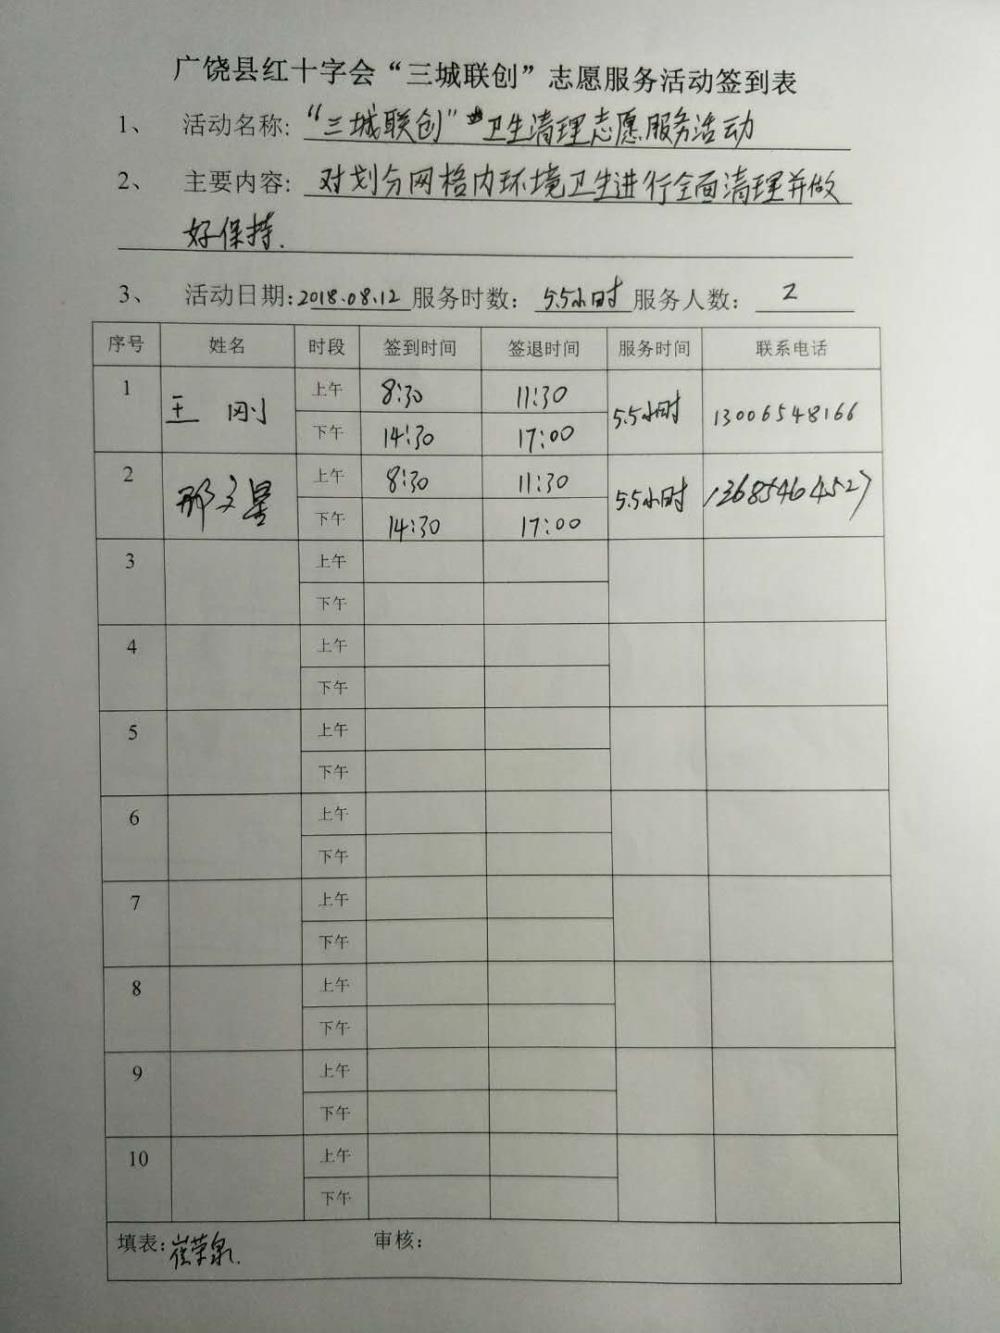 广饶县红十字会“三城联创”志愿服务活动签到表
1、 活动名称: “三城联创”卫生清理志愿服务活动
2、 主要内容: 对划分网格内环境卫生进行全面清理并做
好保持.
3、 活动日期: 2018.08.12 服务时数: 5.5小时 服务人数: 2
序号 姓名 时段 签到时间 签退时间 服务时间 联系电话
1 王刚 上午 8:30 11:30 5.5小时 13006548166
下午 14:30 17:00
2 上午 8:30 11:30 5.5小时 13685464527
下午 14:30 17:00
3 上午
下午
4 上午
下午
5 上午
下午
6 上午
下午
7 上午
下午
8 上午
下午
9 上午
下午
10 上午
下午
填表: 崔荣泉. 审核: